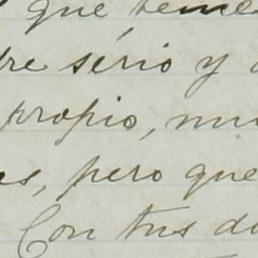 que, teme
serio y
propio, mu
pero que
Con tus do